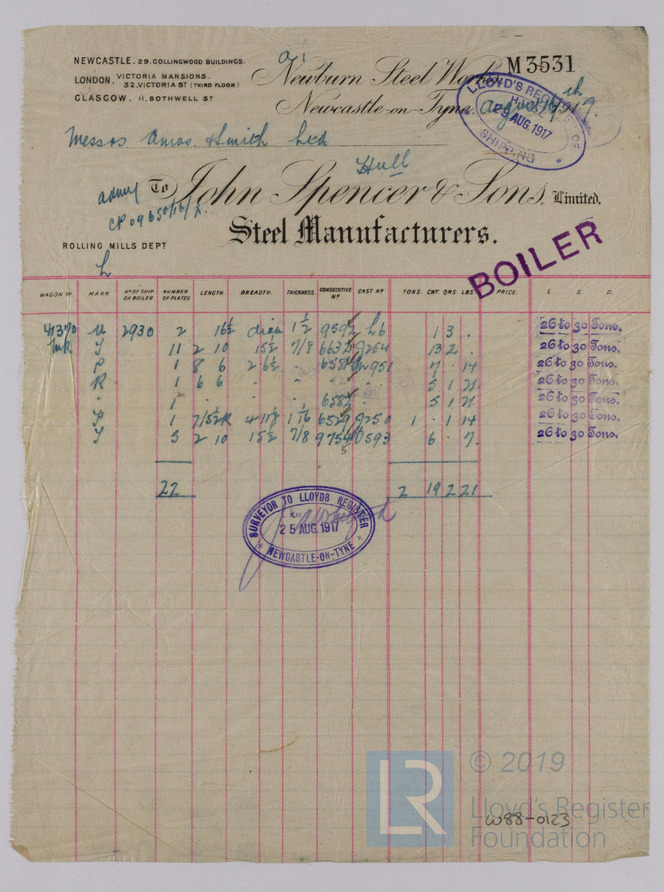 NEWCASTLE. 29. COLLINGWOOD BUILDINGS.
LONDON. VICTORIA MANSIONS. 32. VICTORIA ST (THIRD FLOOR)
GLASGOW. 11, BOTHWELL ST
Newburn Steel Works
M 3531
Newcastle-on-Tyne, August 191
LLOYD'S REGISTER OF SHIPPING
HULL
AUG. 1917
Messrs Amos & Smith Ltd
Hull
To John Spencer & Sons, Limited.
Steel Manufacturers.
ROLLING MILLS DEPT
BOILER
WAGON No MARK No OF SHIP OR BOILER NUMBER OF PLATES LENGTH. BREADTH. THICKNESS. CONSECUTIVE No CAST No TONS CWT. QRS. LBS. PRICE. £ S. D.
2930 2 16½ diam 1½ 1 3 . 26 to 30 Tons.
11 2 10 15½ 7/8 13 2 . 26 to 30 Tons.
P 1 8 6 2 6½ 7 . 14 26 to 30 Tons.
R 1 6 6 5 1 21 26 to 30 Tons.
1 6582 5 1 21 26 to 30 Tons.
1 9250 1 . 1 14 26 to 30 Tons.
5 2 10 15½ 7/8 6 . 7 26 to 30 Tons.
22 2 19 2 21
SURVEYOR TO LLOYDS REGISTER
25 AUG. 1917
NEWCASTLE-ON-TYNE
LR
© 2019
Lloyd's Register
Foundation
W88-0123